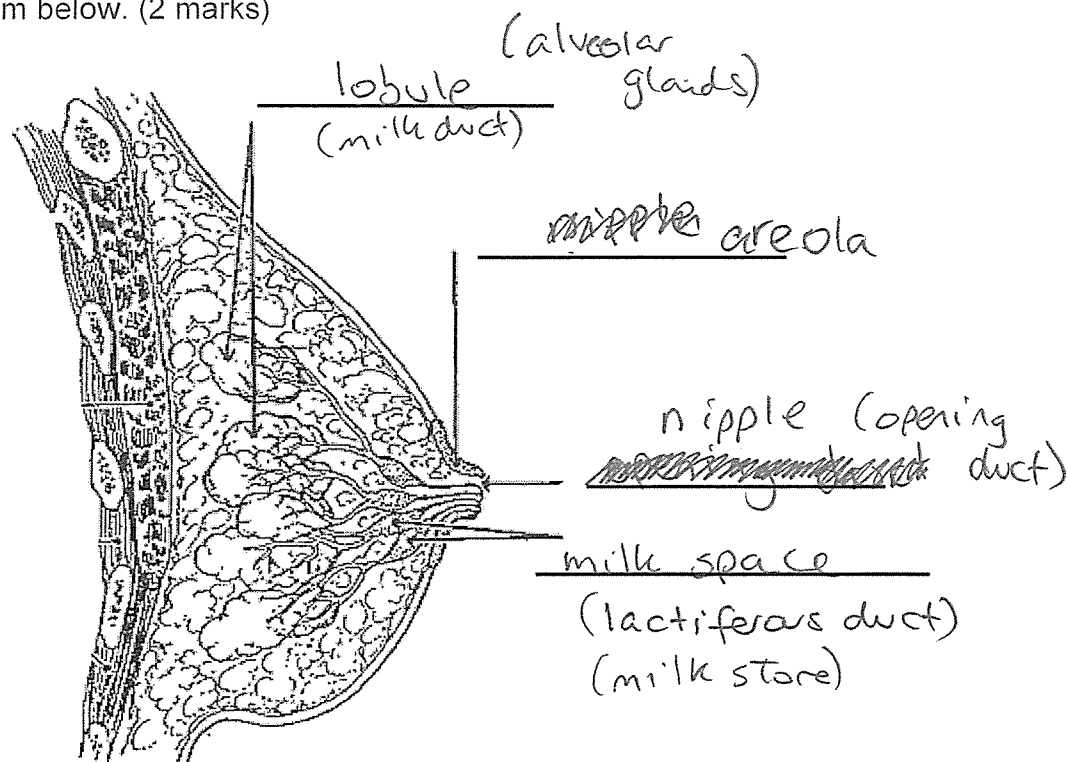 m below. (2 marks)
(alveolar
glands)
lobule
(milk duct)
nipple areola
nipple (opening
duct)
milk space
(lactiferous duct)
(milk store)